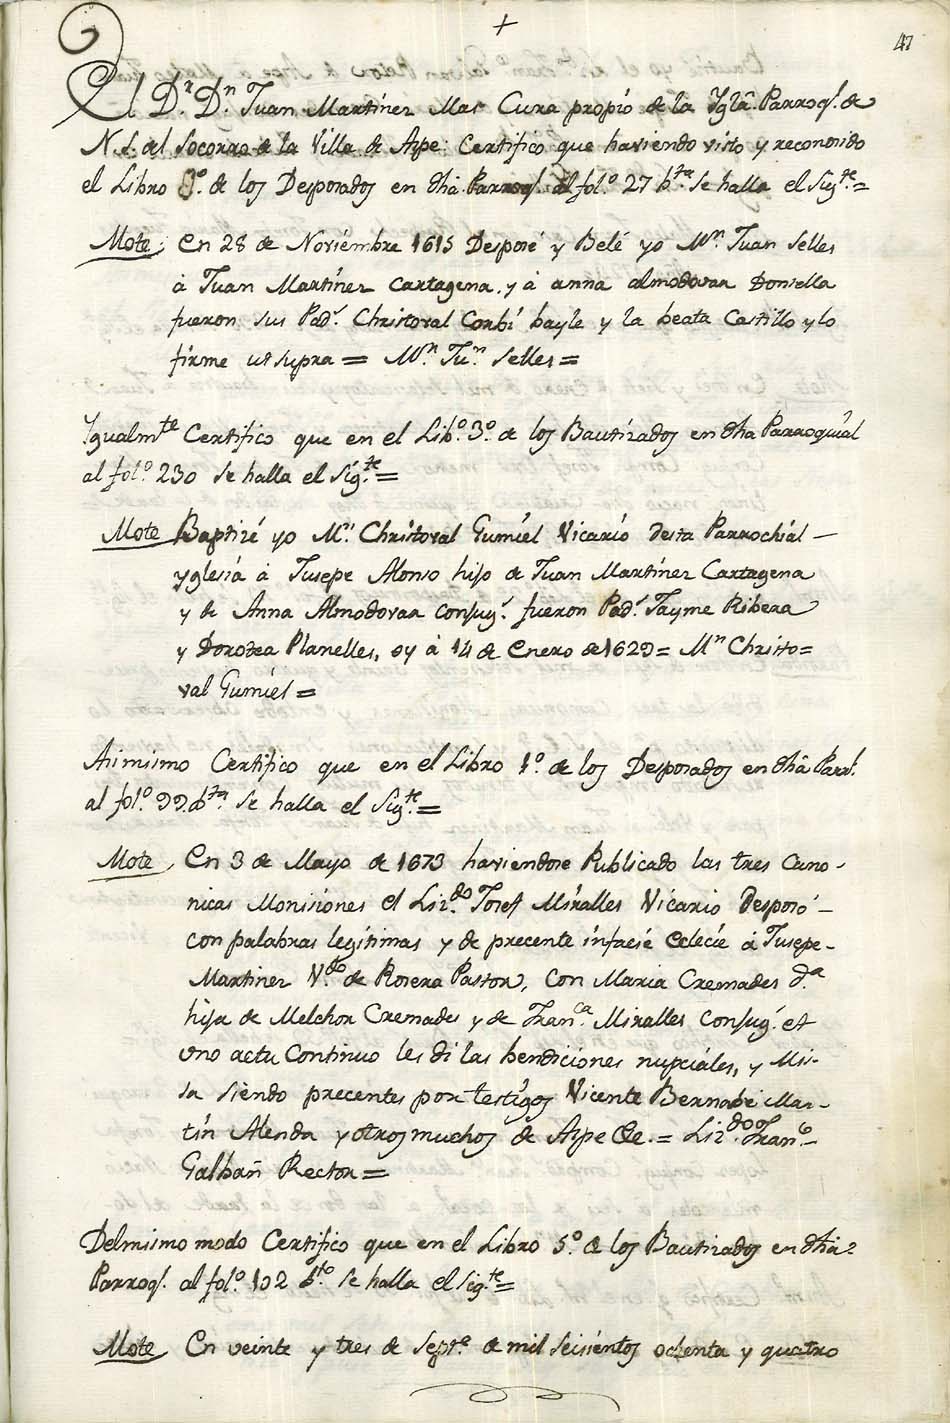 +
47
El D.r D.n Juan Martinez Mas Cura propio de la Yglâ. Parroql. de
N. S. del Socorro de la Villa de Aspe: Certifico que haviendo visto y reconosido
el Libro 1º. de los Desposados en dhâ. Parroql. al fol.º 27 b.ta se halla el Sig.te =
Mote; En 28 de Noviembre 1615 Desposé y Belé yo M.n Juan Selles
à Juan Martinez Cartagena. y à anna almodovar Donsella
fueron sus Pad.s Christoval Corbí bayle y la beata Castillo y lo
firme ut supra = M.n Ju.n Selles =
Ygualm.te Certifico que en el Lib.º 3º. de los Bautizados en dha Parroquial
al fol.º 230 se halla el Sig.te =
Mote Baptizé yo M.n Christoval Gumiel Vicario desta Parrochial —
Yglesia à Jusepe Alonso hijo de Juan Martinez Cartagena
y de Anna Almodovar conjug.s fueron Pad.s Jayme Ribera
y Dorotea Planelles, oy à 14 de Enero de 1629 = M.n Christo=
val Gumiel =
Asimismo Certifico que en el Libro 1º. de los Desposados en dhâ Parrl.
al fol.º 99. b.ta se halla el Sig.te =
Mote En 3 de Mayo de 1673 haviendose Publicado las tres Cano-
nicas Monisiones el Liz.do Josef Miralles Vicario Desposó —
con palabras legitimas y de precente infacié Eclecie à Jusepe-
Martinez V.do de Rosera Pastor, con Maria Cremades d.a
hija de Melchor Cremades y de Fran.ca Miralles conjug.s et
uno actu Continuo les di las bendiciones nupciales, y Mi-
sa siendo precentes por testigos Vicente Bernabé Mar-
tin Alenda y otros muchos de Aspe &e. = Liz.do Fran.co
Galbañ Rector =
Delmismo modo Certifico que en el Libro 5º. de los Bautizados en dhâ
Parroql. al fol.º 102 b.to se halla el sig.te =
Mote En veinte y tres de Sept.e de mil seisientos ochenta y quatro